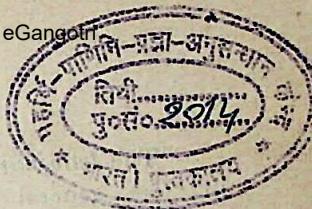 eGangotri
महर्षि-पाणिनि-प्रज्ञा-अनुसन्धान
तिथी............
पु०सं० 2014
* भारती पुस्तकालय *